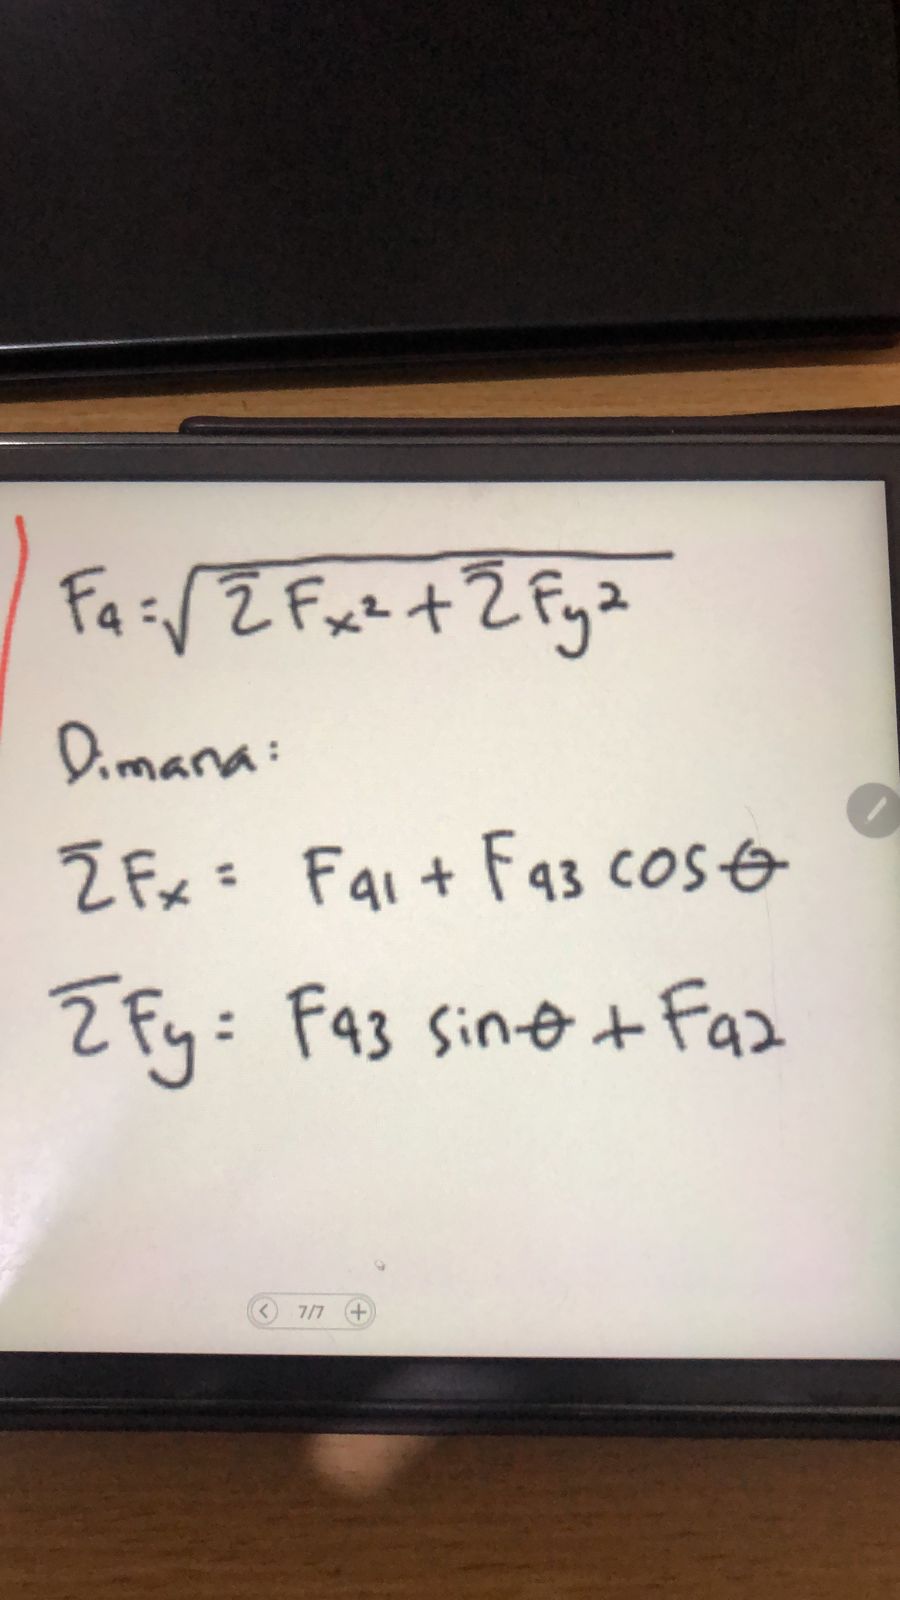 Fq = √ΣFx² + ΣFy²
Dimana:
ΣFx = Fq1 + Fq3 cos θ
ΣFy = Fq3 sin θ + Fq2
7/7